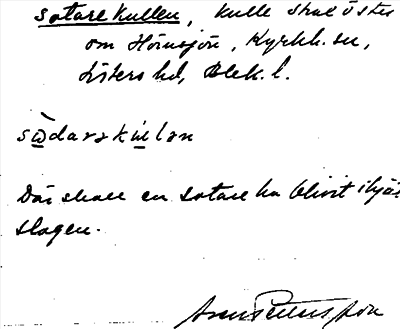 Sotarekullen, kulle strax öster
om Hörnsjön, Kyrkh. sn,
Listers hd, Blek. l.
sωdarakulan
Där skall en sotare ha blivit ihjäl
slagen.